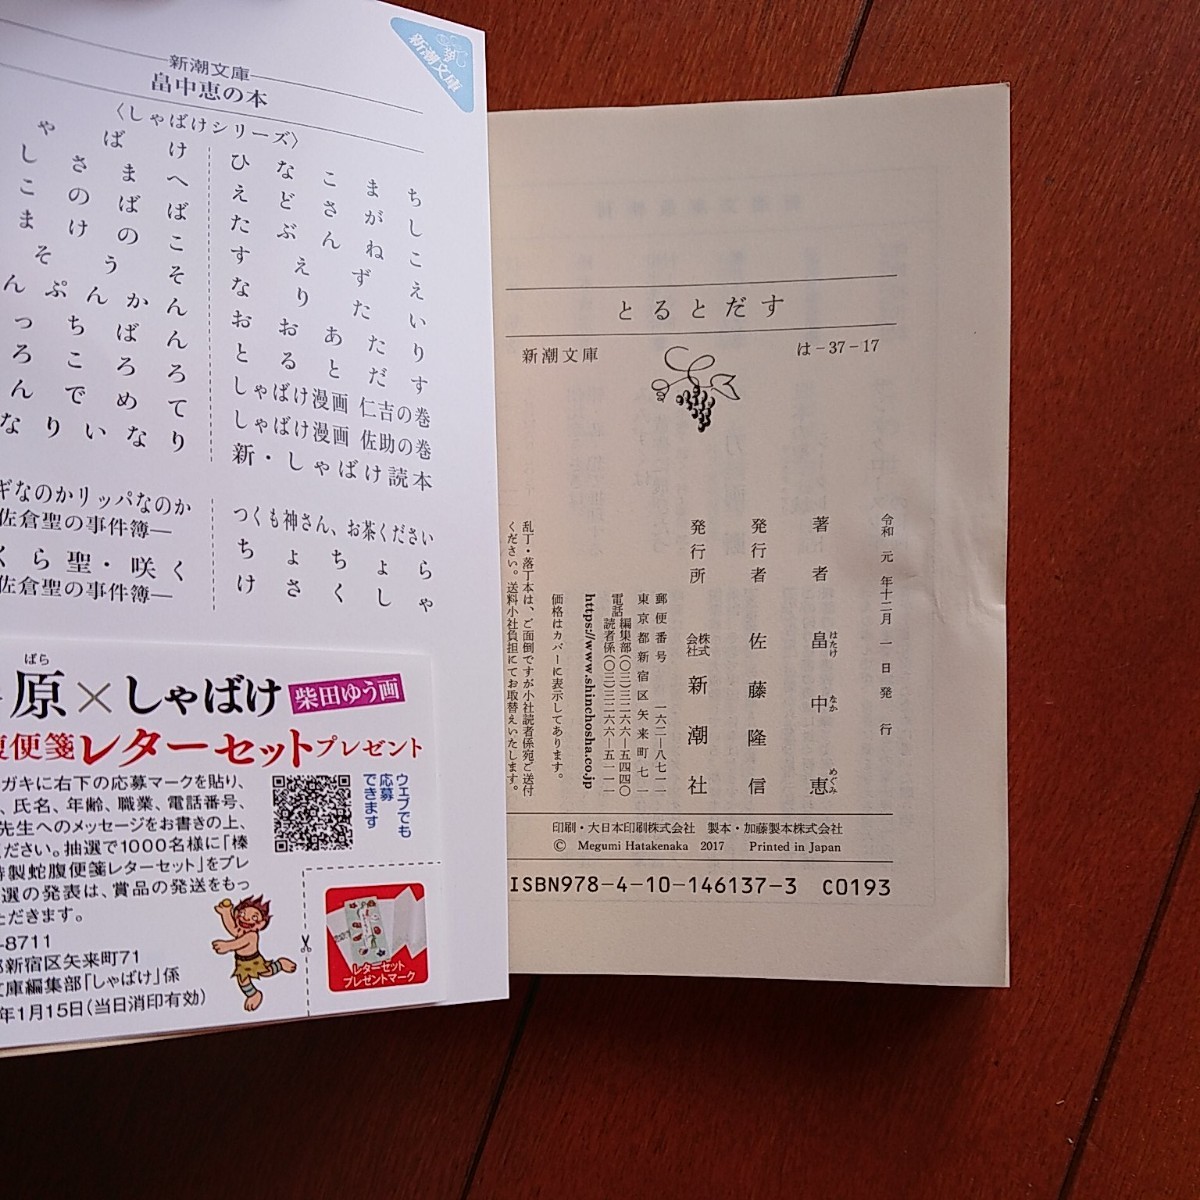 新潮文庫
新潮文庫
畠中恵の本
〈しゃばけシリーズ〉
ゃばけ
しさまへ
このばば
まけのこ
そうそ
んぷんかん
っちばん
ろころろ
んでめて
なりいなり
ひなこまち
えどさがし
たぶんねこ
すえずえ
なりたい
おおあたり
とるとだす
しゃばけ漫画 仁吉の巻
しゃばけ漫画 佐助の巻
新・しゃばけ読本
ギなのかリッパなのか
佐倉聖の事件簿―
くら聖・咲く
佐倉聖の事件簿―
つくも神さん、お茶ください
ちょちょら
けさくしゃ
ばら
原×しゃばけ 柴田ゆう画
腹便箋レターセットプレゼント
ガキに右下の応募マークを貼り、
、氏名、年齢、職業、電話番号、
先生へのメッセージをお書きの上、
ださい。抽選で1000名様に「榛
特製蛇腹便箋レターセット」をプレ
選の発表は、賞品の発送をもっ
ただきます。
-8711
都新宿区矢来町71
文庫編集部「しゃばけ」係
年1月15日(当日消印有効)
ウェブでも
応募
できます
レターセット
プレゼントマーク
とるとだす
新潮文庫 は-37-17
令和元年十二月一日発行
著者 畠中恵
はたけ なか めぐみ
発行者 佐藤隆信
発行所 株式会社 新潮社
郵便番号 一六二―八七一一
東京都新宿区矢来町七一
電話 編集部(〇三)三二六六―五四四〇
読者係(〇三)三二六六―五一一一
https://www.shinchosha.co.jp
価格はカバーに表示してあります。
乱丁・落丁本は、ご面倒ですが小社読者係宛ご送付
ください。送料小社負担にてお取替えいたします。
印刷・大日本印刷株式会社 製本・加藤製本株式会社
© Megumi Hatakenaka 2017 Printed in Japan
ISBN978-4-10-146137-3 C0193